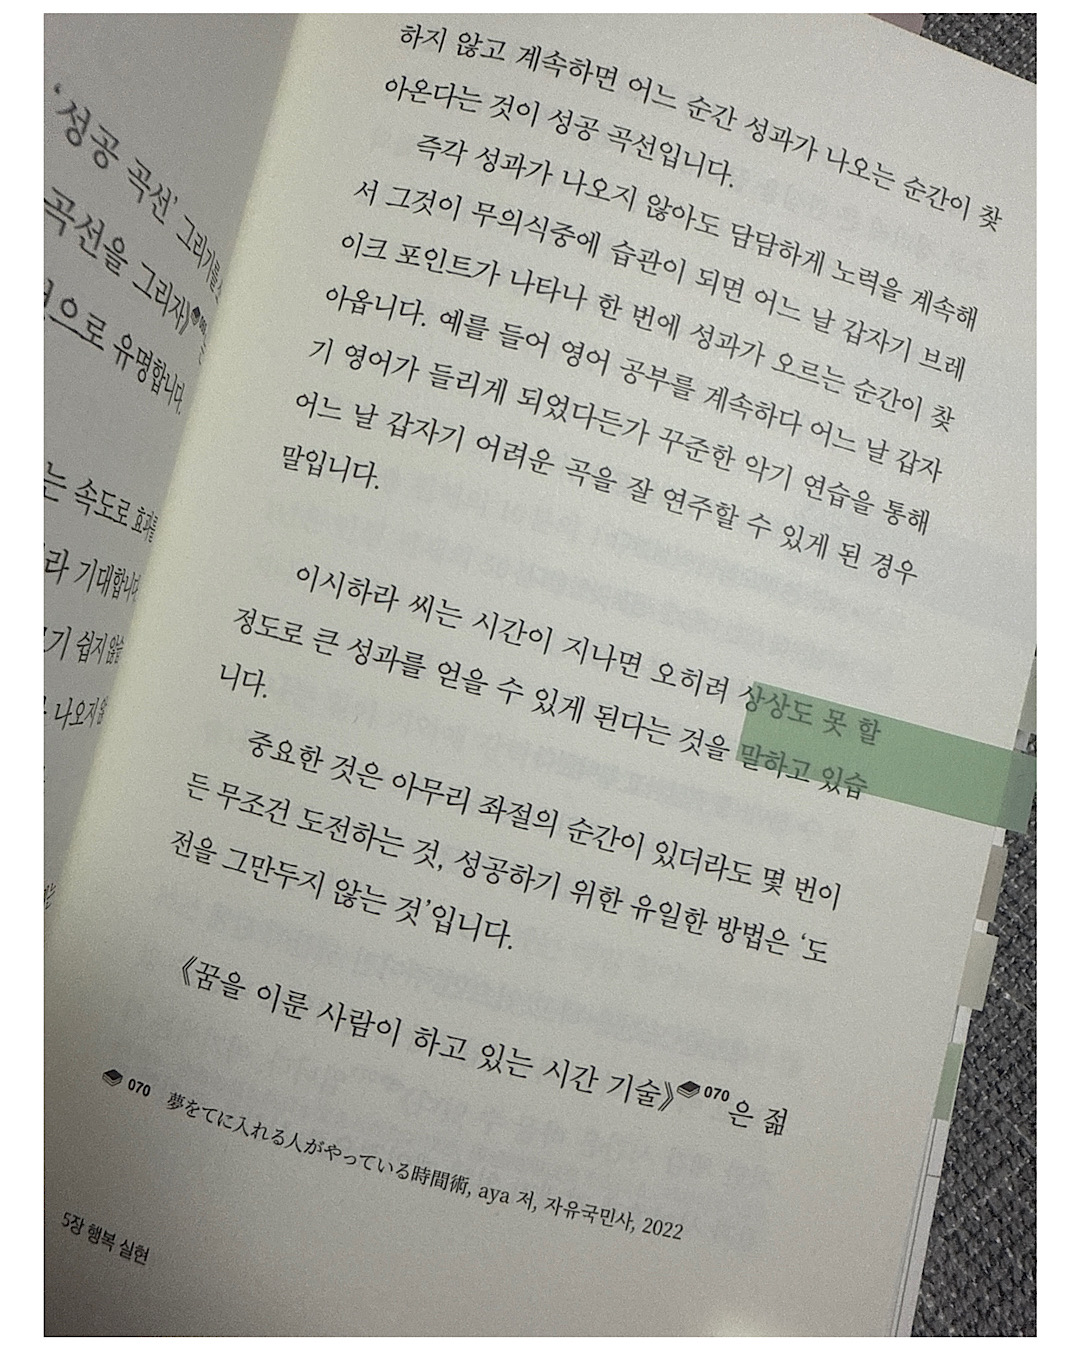 '성공 곡선' 그리기를
곡선을 그리자》
으로 유명합니다.
는 속도로 효과를
라 기대합니다
기 쉽지 않습
나오지 않
하지 않고 계속하면 어느 순간 성과가 나오는 순간이 찾
아온다는 것이 성공 곡선입니다.
즉각 성과가 나오지 않아도 담담하게 노력을 계속해
서 그것이 무의식중에 습관이 되면 어느 날 갑자기 브레
이크 포인트가 나타나 한 번에 성과가 오르는 순간이 찾
아옵니다. 예를 들어 영어 공부를 계속하다 어느 날 갑자
기 영어가 들리게 되었다든가 꾸준한 악기 연습을 통해
어느 날 갑자기 어려운 곡을 잘 연주할 수 있게 된 경우
말입니다.
이시하라 씨는 시간이 지나면 오히려 상상도 못 할
정도로 큰 성과를 얻을 수 있게 된다는 것을 말하고 있습
니다.
중요한 것은 아무리 좌절의 순간이 있더라도 몇 번이
든 무조건 도전하는 것, 성공하기 위한 유일한 방법은 '도
전을 그만두지 않는 것'입니다.
《꿈을 이룬 사람이 하고 있는 시간 기술》070은 젊
070 夢をてに入れる人がやっている時間術, aya 저, 자유국민사, 2022
5장 행복 실현